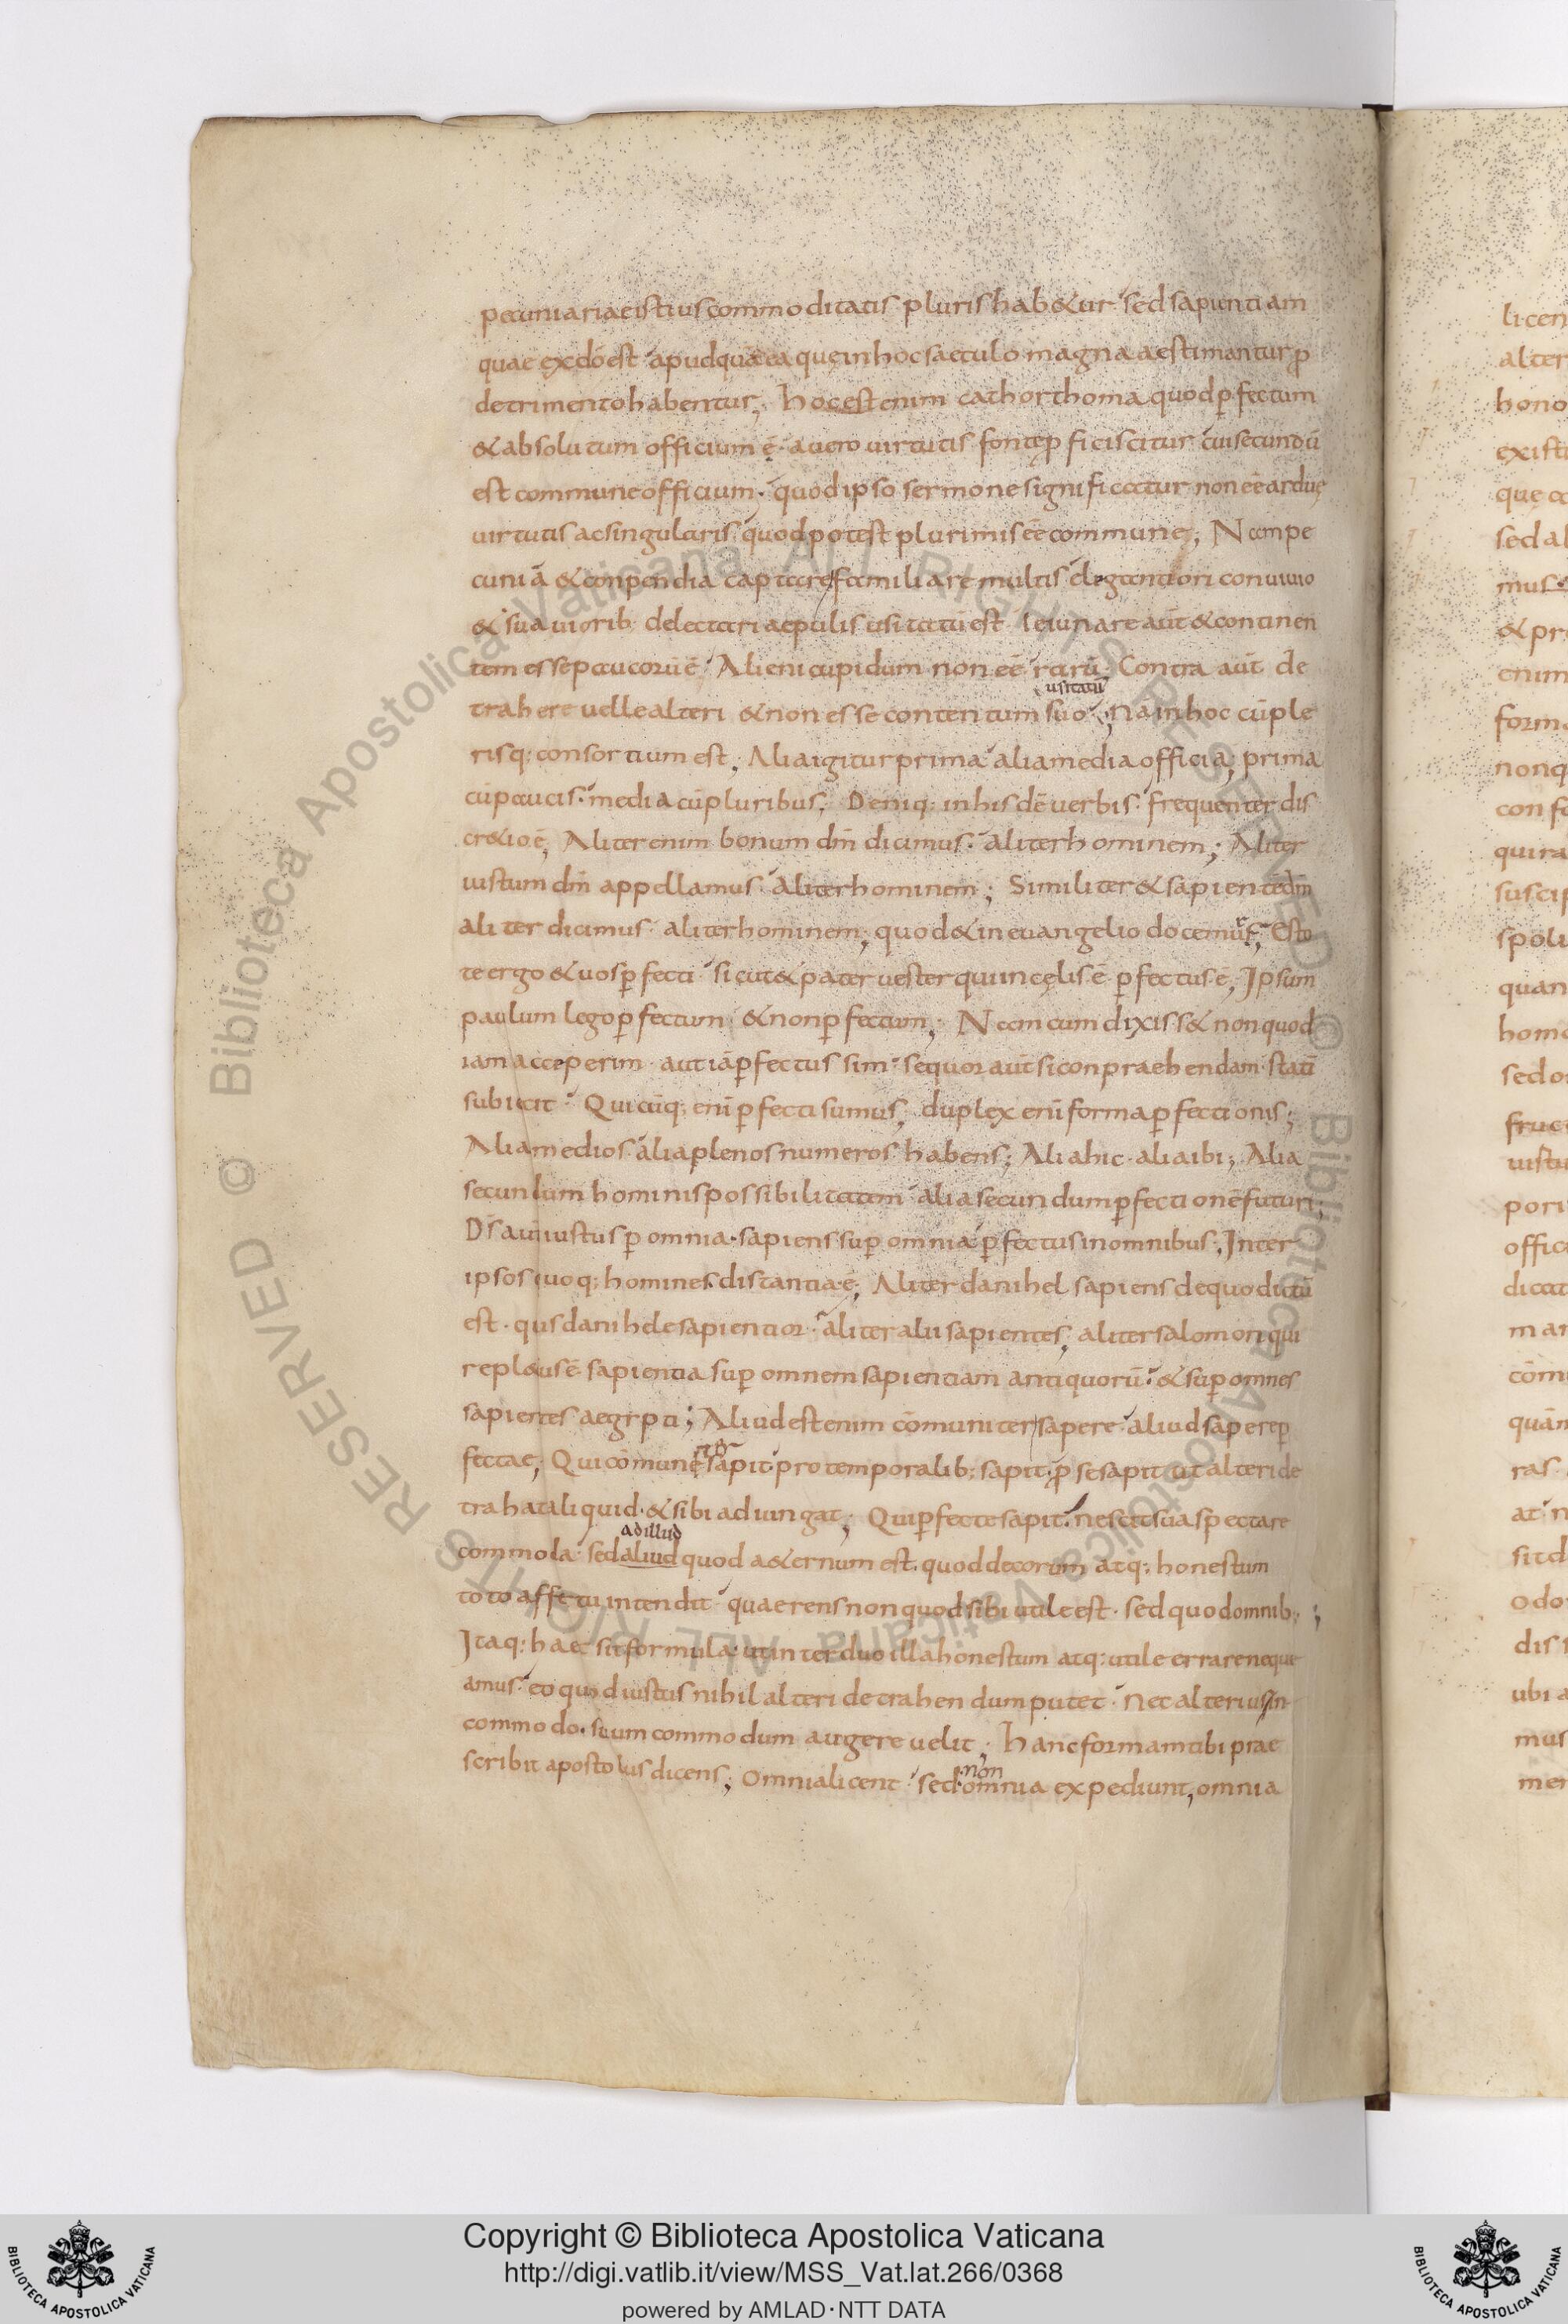 pecuniariae istius commoditatis pluris hab&ur sed sapientiam
quae ex dō est apud quā ea quę in hoc saeculo magna aestimantur ꝓ
detrimento habentur; hoc est enim cathorthoma quod ꝑfectum
& absolutum officium ē· a uero uirtutis fonte ꝓficiscitur cui secundū
est commune officium· quod ipso sermone significatur non eē arduę
uirtutis ac singularis quod potest plurimis eē commune; Nam pe
cuniā & conpendia captare familiare multis elegantiori conuiuio
& suauiorib: delectari aepulis usitatū est Ieiunare aūt & continen
tem esse paucorū ē Alieni cupidum non eē rarū· Contra aūt de
usitatū
trahere uelle alteri & non esse contentum suo; Nā in hoc cū ple
risq: consortium est; Alia igitur prima alia media officia; prima
cū paucis· media cū pluribus; Deniq: in his dē uerbis frequenter dis
cr&io ē; Aliter enim bonum dm̄ dicimus· aliter hominem; Aliter
iustum dm̄ appellamus aliter hominem; Similiter & sapientē dm̄
aliter dicimus aliter hominem; quod & in euangelio docemur; Esto
te ergo & uos ꝑfecti sicut & pater uester qui in cęlis ē ꝑfectus ē; Ipsum
paulum lego ꝑfectum & non ꝑfectum; Nam cum dixiss& non quod
iam acceperim· aut iā ꝑfectus sim· sequor aūt si conpraehendam· statī
subiecit Quicūq: enī ꝑfecti sumus; duplex enī forma ꝑfectionis;
Alia medios alia plenos numeros habens; Alia hic· alia ibi; Alia
secundum hominis possibilitatem alia secundum ꝑfectionē futuri;
Ds̄ aūt iustus ꝑ omnia· sapiens suꝑ omnia ꝑfectus in omnibus; Inter
ipsos quoq: homines distantia ē; Aliter danihel sapiens de quo dictū
est· quis danihele sapientior· aliter alii sapientes; aliter salomon qui
repl&us ē sapientia suꝑ omnem sapientiam antiquorū· & suꝑ omnes
sapientes aegypti; Aliud est enim cōmuniter sapere aliud sapere ꝑ
fectae; Qui cōmune sapit pro temporalib: sapit· ꝓ se sapit ut alteri de
trahat aliquid· & sibi adiungat; Qui ꝑfecte sapit nescit sua spectare
ad illud
commoda· sed aliud quod a&ernum est· quod decorum atq: honestum
toto affectu intendit quaerens non quod sibi utile est· sed quod omnib:;
Itaq: haec sit formula· ut inter duo illa honestum atq: utile errare neque
amus· eo quod iustus nihil alteri detrahendum putet· Nec alterius in
commodo· suum commodum augere uelit; hanc formam tibi prae
non
scribit apostolus dicens; Omnia licent sed omnia expediunt, omnia
Copyright © Biblioteca Apostolica Vaticana
http://digi.vatlib.it/view/MSS_Vat.lat.266/0368
powered by AMLAD·NTT DATA
BIBLIOTECA APOSTOLICA VATICANA
BIBLIOTECA APOSTOLICA VATICANA
© Biblioteca Apostolica Vaticana ALL RIGHTS RESERVED
© Biblioteca Apostolica Vaticana ALL RIGHTS RESERVED